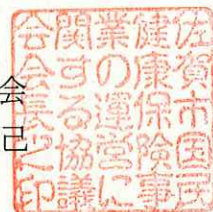 会
己
佐賀市国民
健康保険事
業の運営に
関する協議
会会長之印